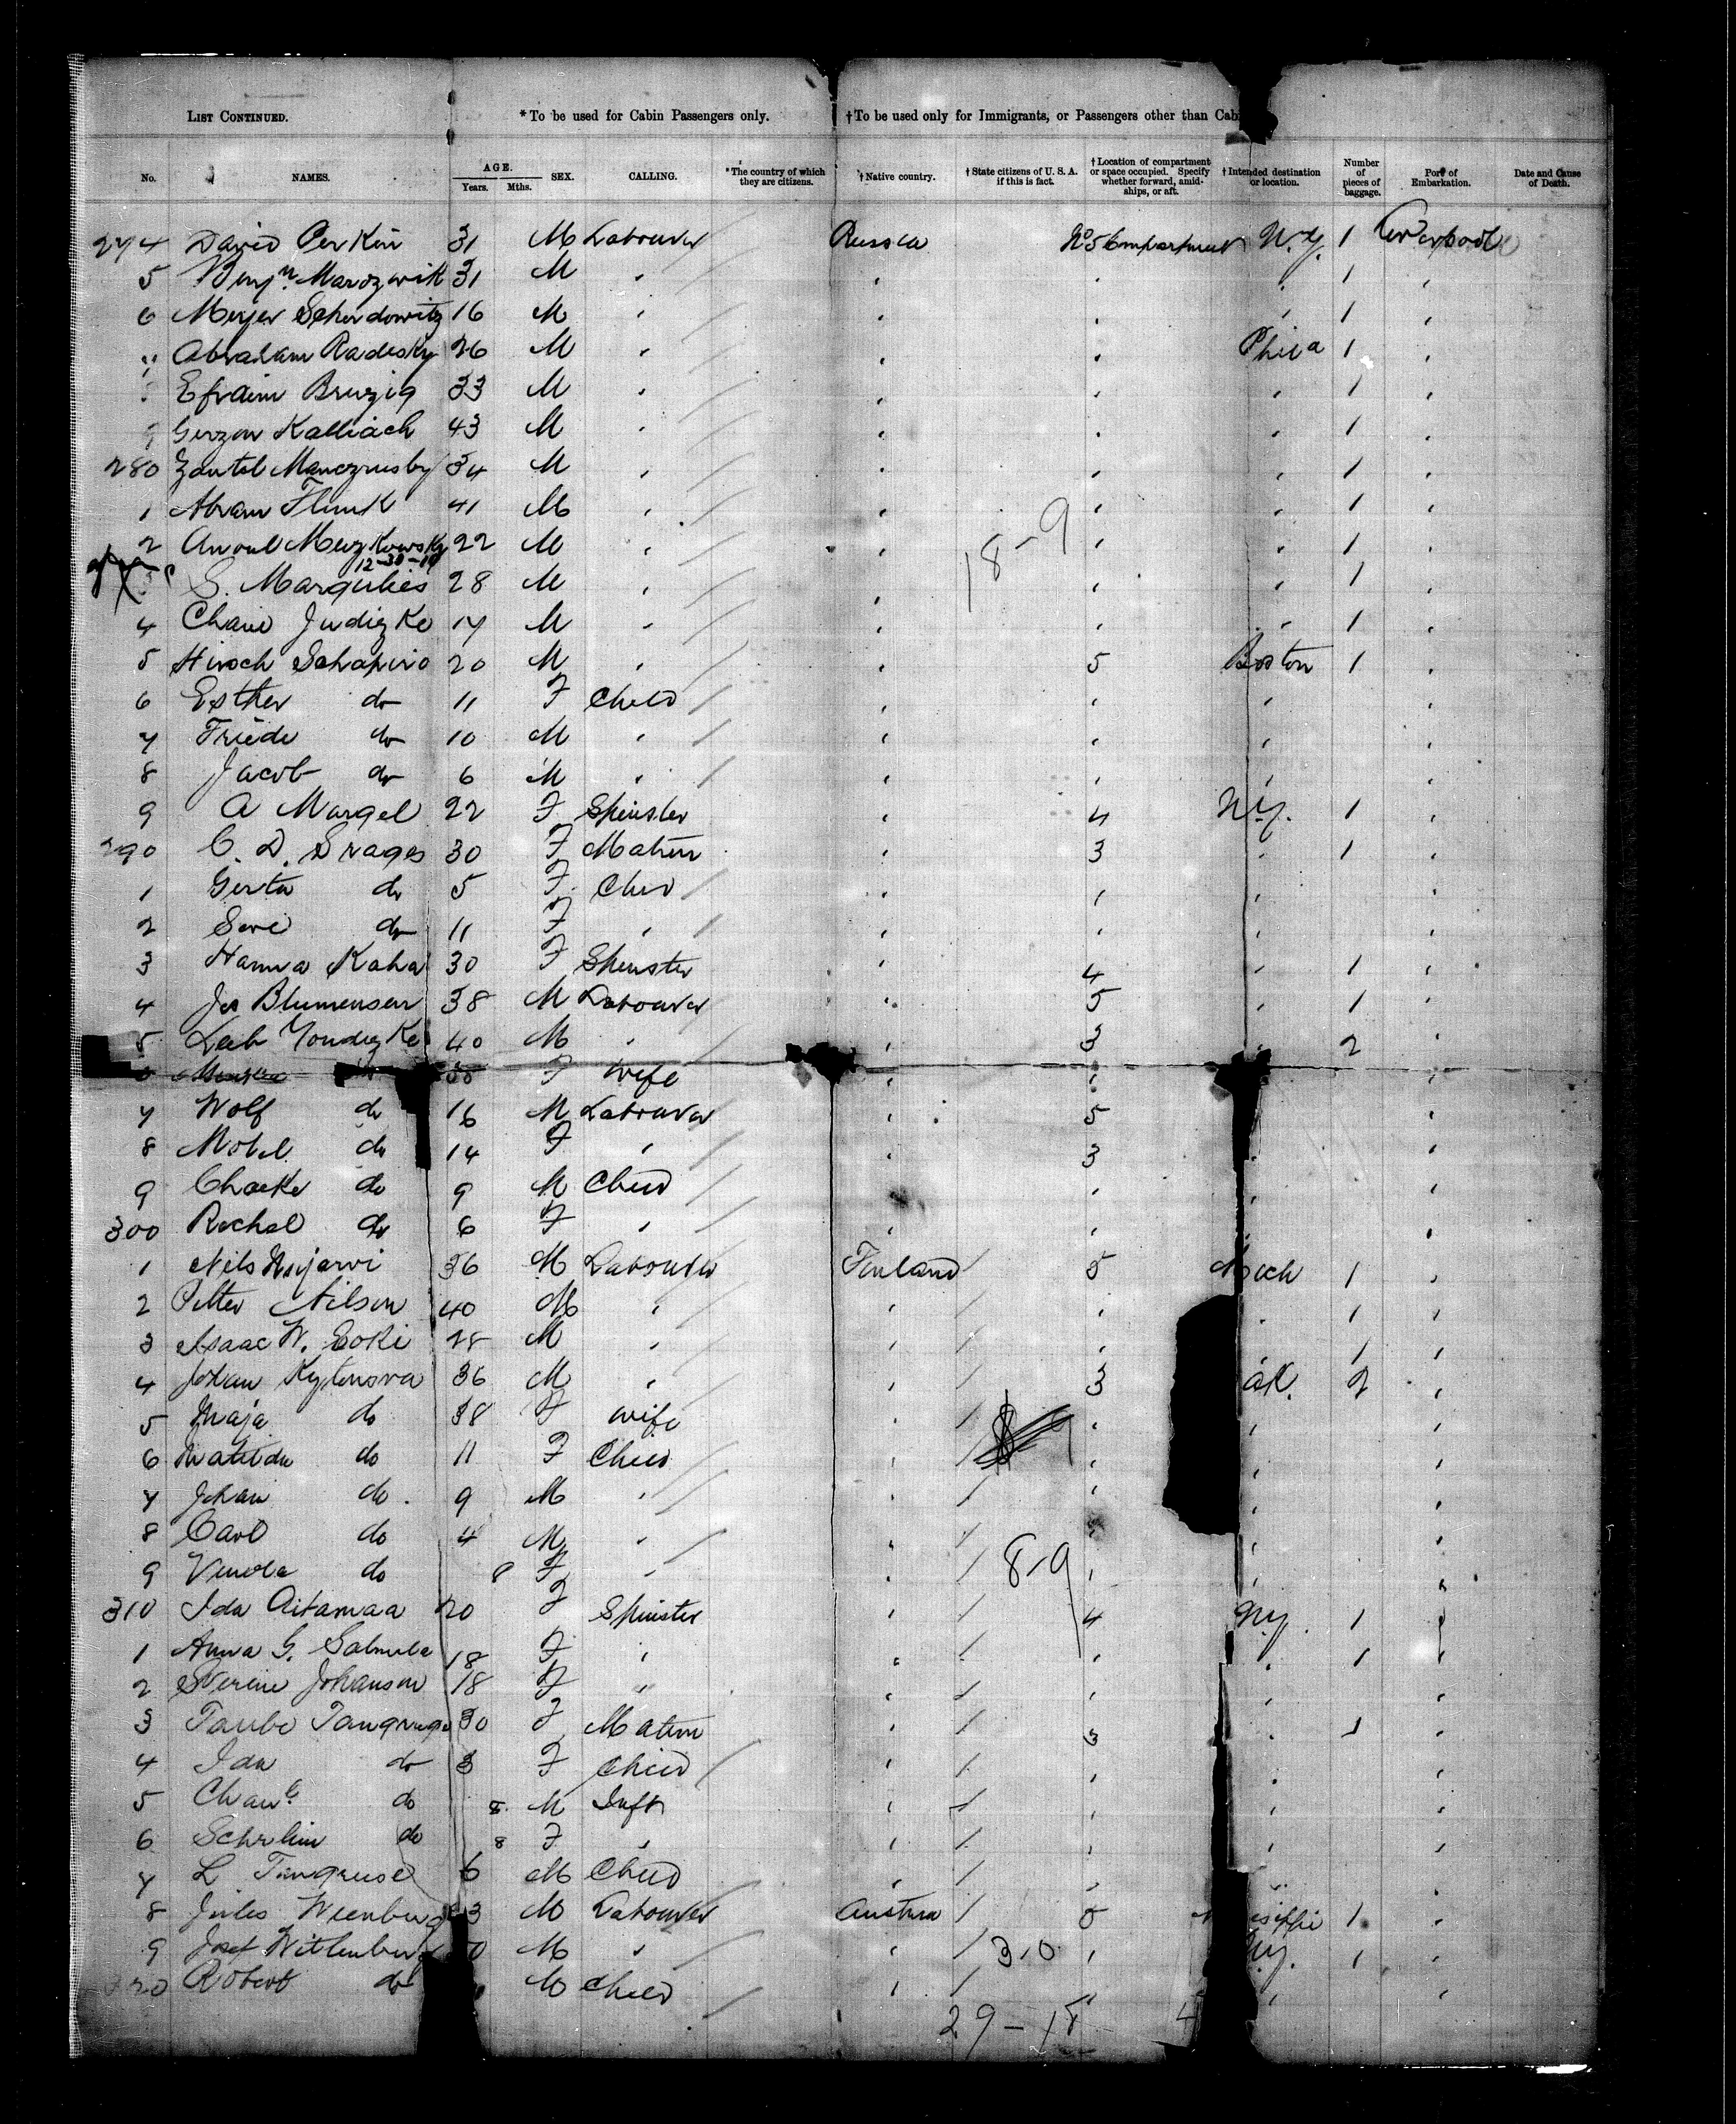 LIST CONTINUED. *To be used for Cabin Passengers only. †To be used only for Immigrants, or Passengers other than Cab
No. NAMES. AGE. Years. Mths. SEX. CALLING. *The country of which they are citizens. †Native country. †State citizens of U. S. A. if this is fact. †Location of compartment or space occupied. Specify whether forward, amidships, or aft. †Intended destination or location. Number of pieces of baggage. Port of Embarkation. Date and Cause of Death.
274 David Perkin 31 M Labourer Russia No 5 Compartment N.Y. 1 Liverpool
5 Benjn. 31 M " " " " 1 "
6 Meyer Scherdowitz 16 M " " " " 1 "
Abraham Radesky 26 M " " " Phila 1 "
Efraim Bruzig 33 M " " " " 1 "
9 Gerzon Kalliach 43 M " " " " 1 "
280 34 M " " " " 1 "
1 Abram Flunk 41 M " " " " 1 "
2 22 M " " " " 1 "
12-30-10
S. Margulies 28 M " " " " 1 "
18-9
4 Chaie Judizke 17 M " " " " 1 "
5 Hirsch Schapiro 20 M " " 5 Boston 1 "
6 Esther do 11 F Child " " " "
7 Friede do 10 M " " " " "
8 Jacob do 6 M " " " " "
9 A Margel 22 F Spinster " 4 N.Y. 1 "
290 C. D. Srages 30 F Matron " 3 " 1 "
1 Gerta do 5 F Child " " " "
2 Sore do 11 F " " " " "
3 Hanna Kaha 30 F Spinster " 4 " 1 "
4 Jos Blumensen 38 M Labourer " 5 " 1 "
5 Leib Youdizke 40 M " " 3 " 2 "
38 F Wife " " "
7 Wolf do 16 M Labourer " 5 "
8 Motel do 14 F " " 3 " "
9 Chaeke do 9 M Child " " " "
300 Rachel do 6 F " " " " "
1 Nils 36 M Labourer Finland / 5 Mich 1 "
2 Petter Nilson 40 M " " / " " 1 "
3 Isaac W. Eoki 28 M " " / " " 1 "
4 Johan Kytensva 36 M " " / 3 ak. 2 "
5 Maja do 38 F Wife " / " " "
6 Matilda do 11 F Child " / " " "
7 Johan do 9 M " " / " " "
8 Carl do 4 M " " / " " "
9 do 8 F " " / " " "
8-9
310 Ida Aitamaa 20 F Spinster " / 4 N.Y. 1 "
1 Anna G. Salmela 18 F " " / " " 1 "
2 Johanson 18 F " " / " " "
3 Taube 30 F Matron " / 3 " 1 "
4 Ida do 3 F Child " / " " "
5 do 8 M Inft " / " " "
6 do 8 F " " / " " "
7 L 6 M Child " / " "
8 Jules Weenburg 3 M Labourer Austria / 5 issippi 1 "
9 Josef Wittenburg 0 M " " / " N.Y. 1 "
3-0
320 Robert do M Child " / " " "
29-18 4